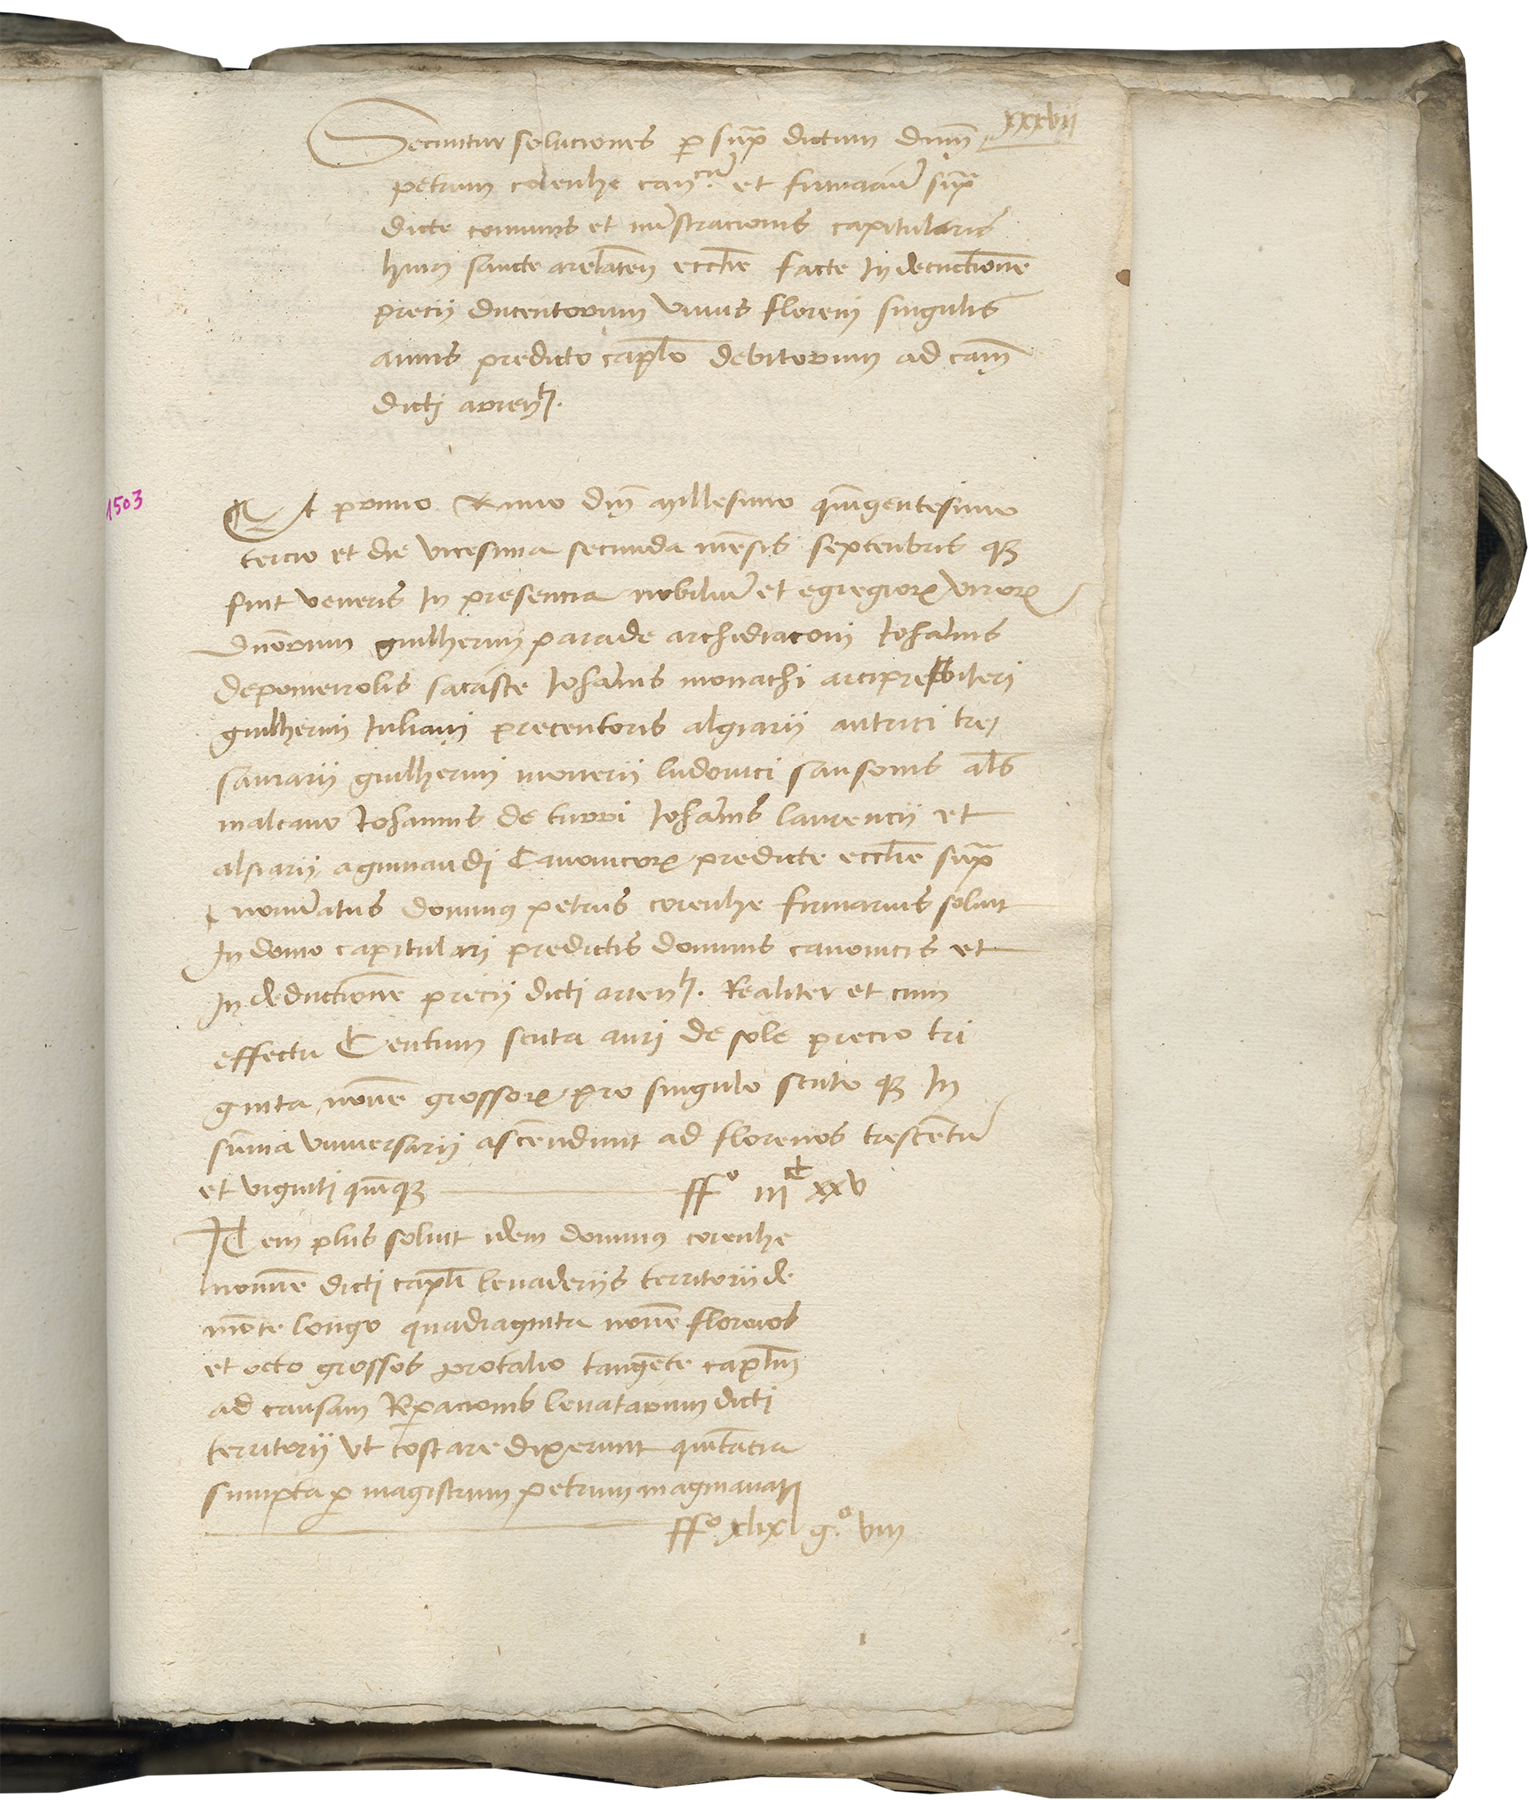 xxxvii
Secuntur soluciones per supra dictum dnm
petrum corenhe can.cum et firmarium supra
dicte comunis et mistracionis capitularis
huius sancte arelaten ecclie facte In deductione
precij ducentorum unius florenj singulis
annis predicto caplo debitorum ad cam
dictj arrenti.
1503
Et primo Anno dnj millesimo quingentesimo
tercio et die vicesima secunda mensis septenbris que
fuit veneris In presencia nobilium et egregiorum virorum
dnorum guilhermi parade archidiaconi Johanis
de pomeirolis sacriste Johanis monachi arcipresbiteri
guilhermi Juliani precentoris algiarij autrici tre
saurarij guilhermi monerij ludovici sansonis als
malcavo Johannis de turri Johanis laurencij et
alsiarij aguinaudj Canonicorum predicte ecclie supra
nominatus dominus petrus corenhe firmarius soluit
In domo capitularj predictis dominis canonicis et
In deductione precij dicti arrenti. Realiter et cum
effectu Centum scuta aurj de sole precio tri
ginta novem grossorum pro singulo scuto que In
summa universarij ascendunt ad florenos trescentum
et viginti quinque ff° iiiC xxv
Item plus soluit idem dominus corenhe
nomine dicti capli levaderijs territorij de
monte longo quadraginta novem florenos
et octo grossos pro talio tangente caplum
ad causam Reparacionis levatarum dicti
territorij ut costare dixerunt quitancia
sumpta per magistrum petrum maginavatj
ff° xlix g° viii